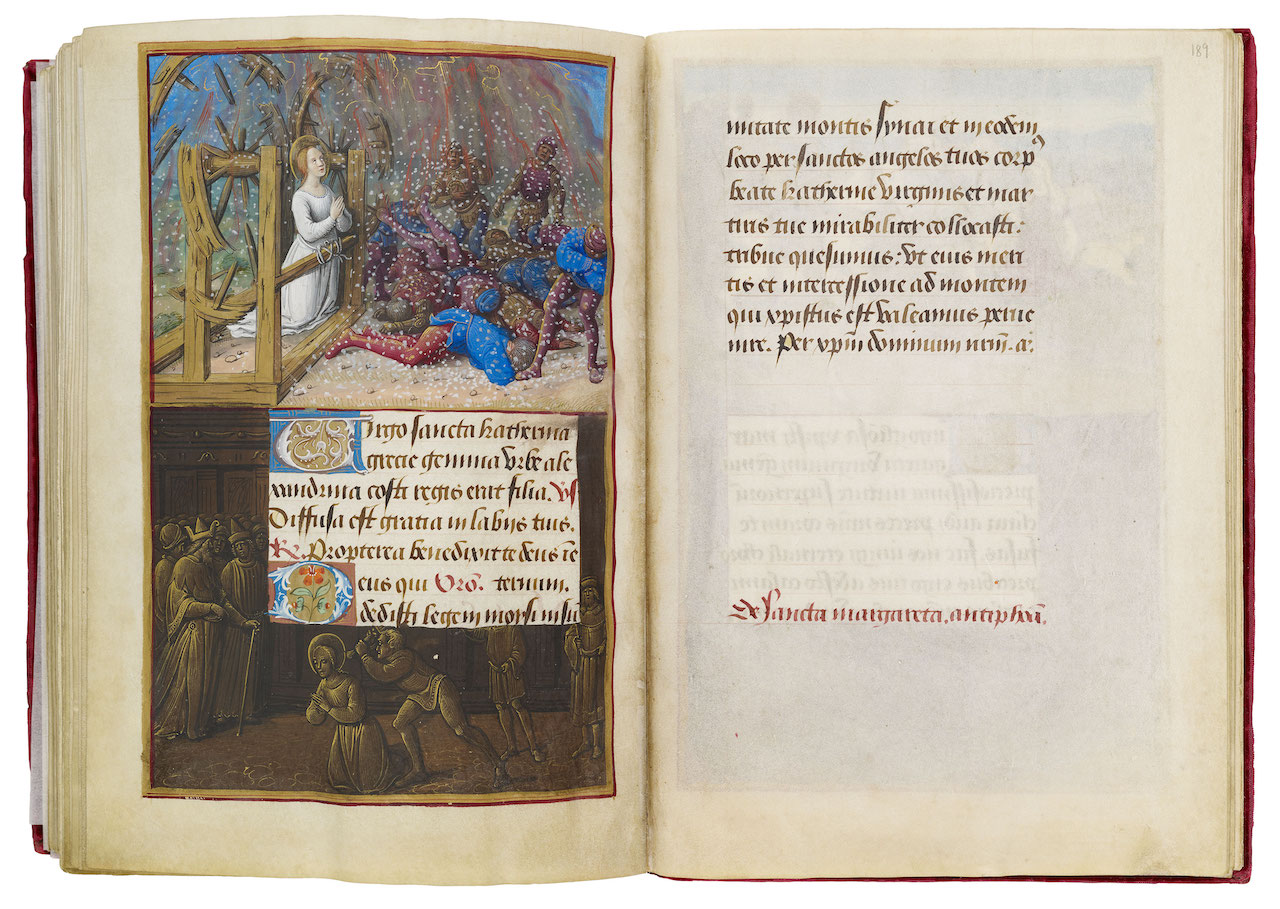 Virgo sancta katherina
grecie gemma urbe ale
xandrina costi regis erat filia. Vs
Diffusa est gratia in labijs tuis.
R. Propterea benedixit te deus i e
Deus qui Oro. ternum.
dedisti legem moysi in su
189
mitate montis synai et in eodem
loco per sanctos angelos tuos corpꝰ
beate katherine virginis et mar
tiris tue mirabiliter collocasti:
tribue quesumus: ut eius meri
tis et intercessione ad montem
qui xpistus est valeamus perue
nire. Per xp̄m dominum nr̄m. a:
De sancta margareta. antiphoā.